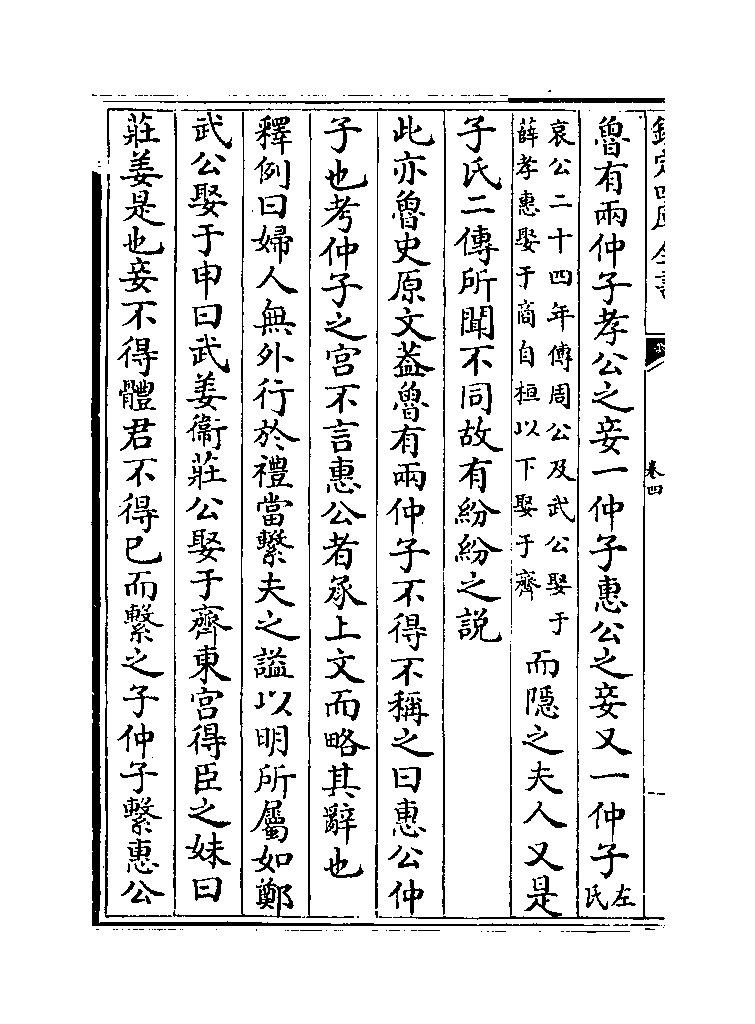 欽定四庫全書
卷四
魯有兩仲子孝公之妾一仲子惠公之妾又一仲子左氏
哀公二十四年傳周公及武公娶于薛孝惠娶于商自桓以下娶于齊而隱之夫人又是
子氏二傳所聞不同故有紛紛之説
此亦魯史原文葢魯有兩仲子不得不稱之曰惠公仲
子也考仲子之宮不言惠公者承上文而略其辭也
釋例曰婦人無外行於禮當繫夫之諡以明所屬如鄭
武公娶于申曰武姜衞莊公娶于齊東宮得臣之妹曰
莊姜是也妾不得體君不得已而繫之子仲子繫惠公